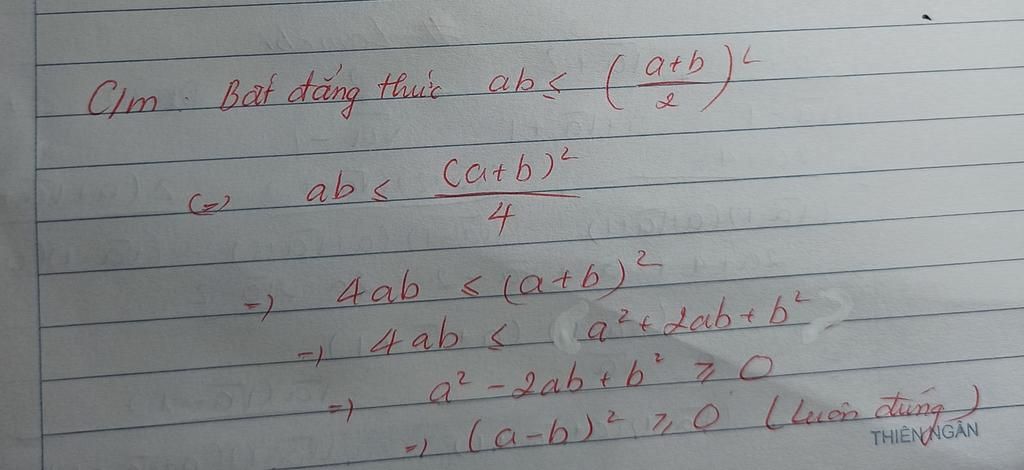 C/m. Bất đẳng thức ab ≤ (a+b/2)²
(=) ab ≤ (a+b)²/4
=) 4ab ≤ (a+b)²
=) 4ab ≤ a² + 2ab + b²
=) a² - 2ab + b² ≥ 0
=) (a-b)² ≥ 0 (luôn đúng)
THIÊN NGÂN